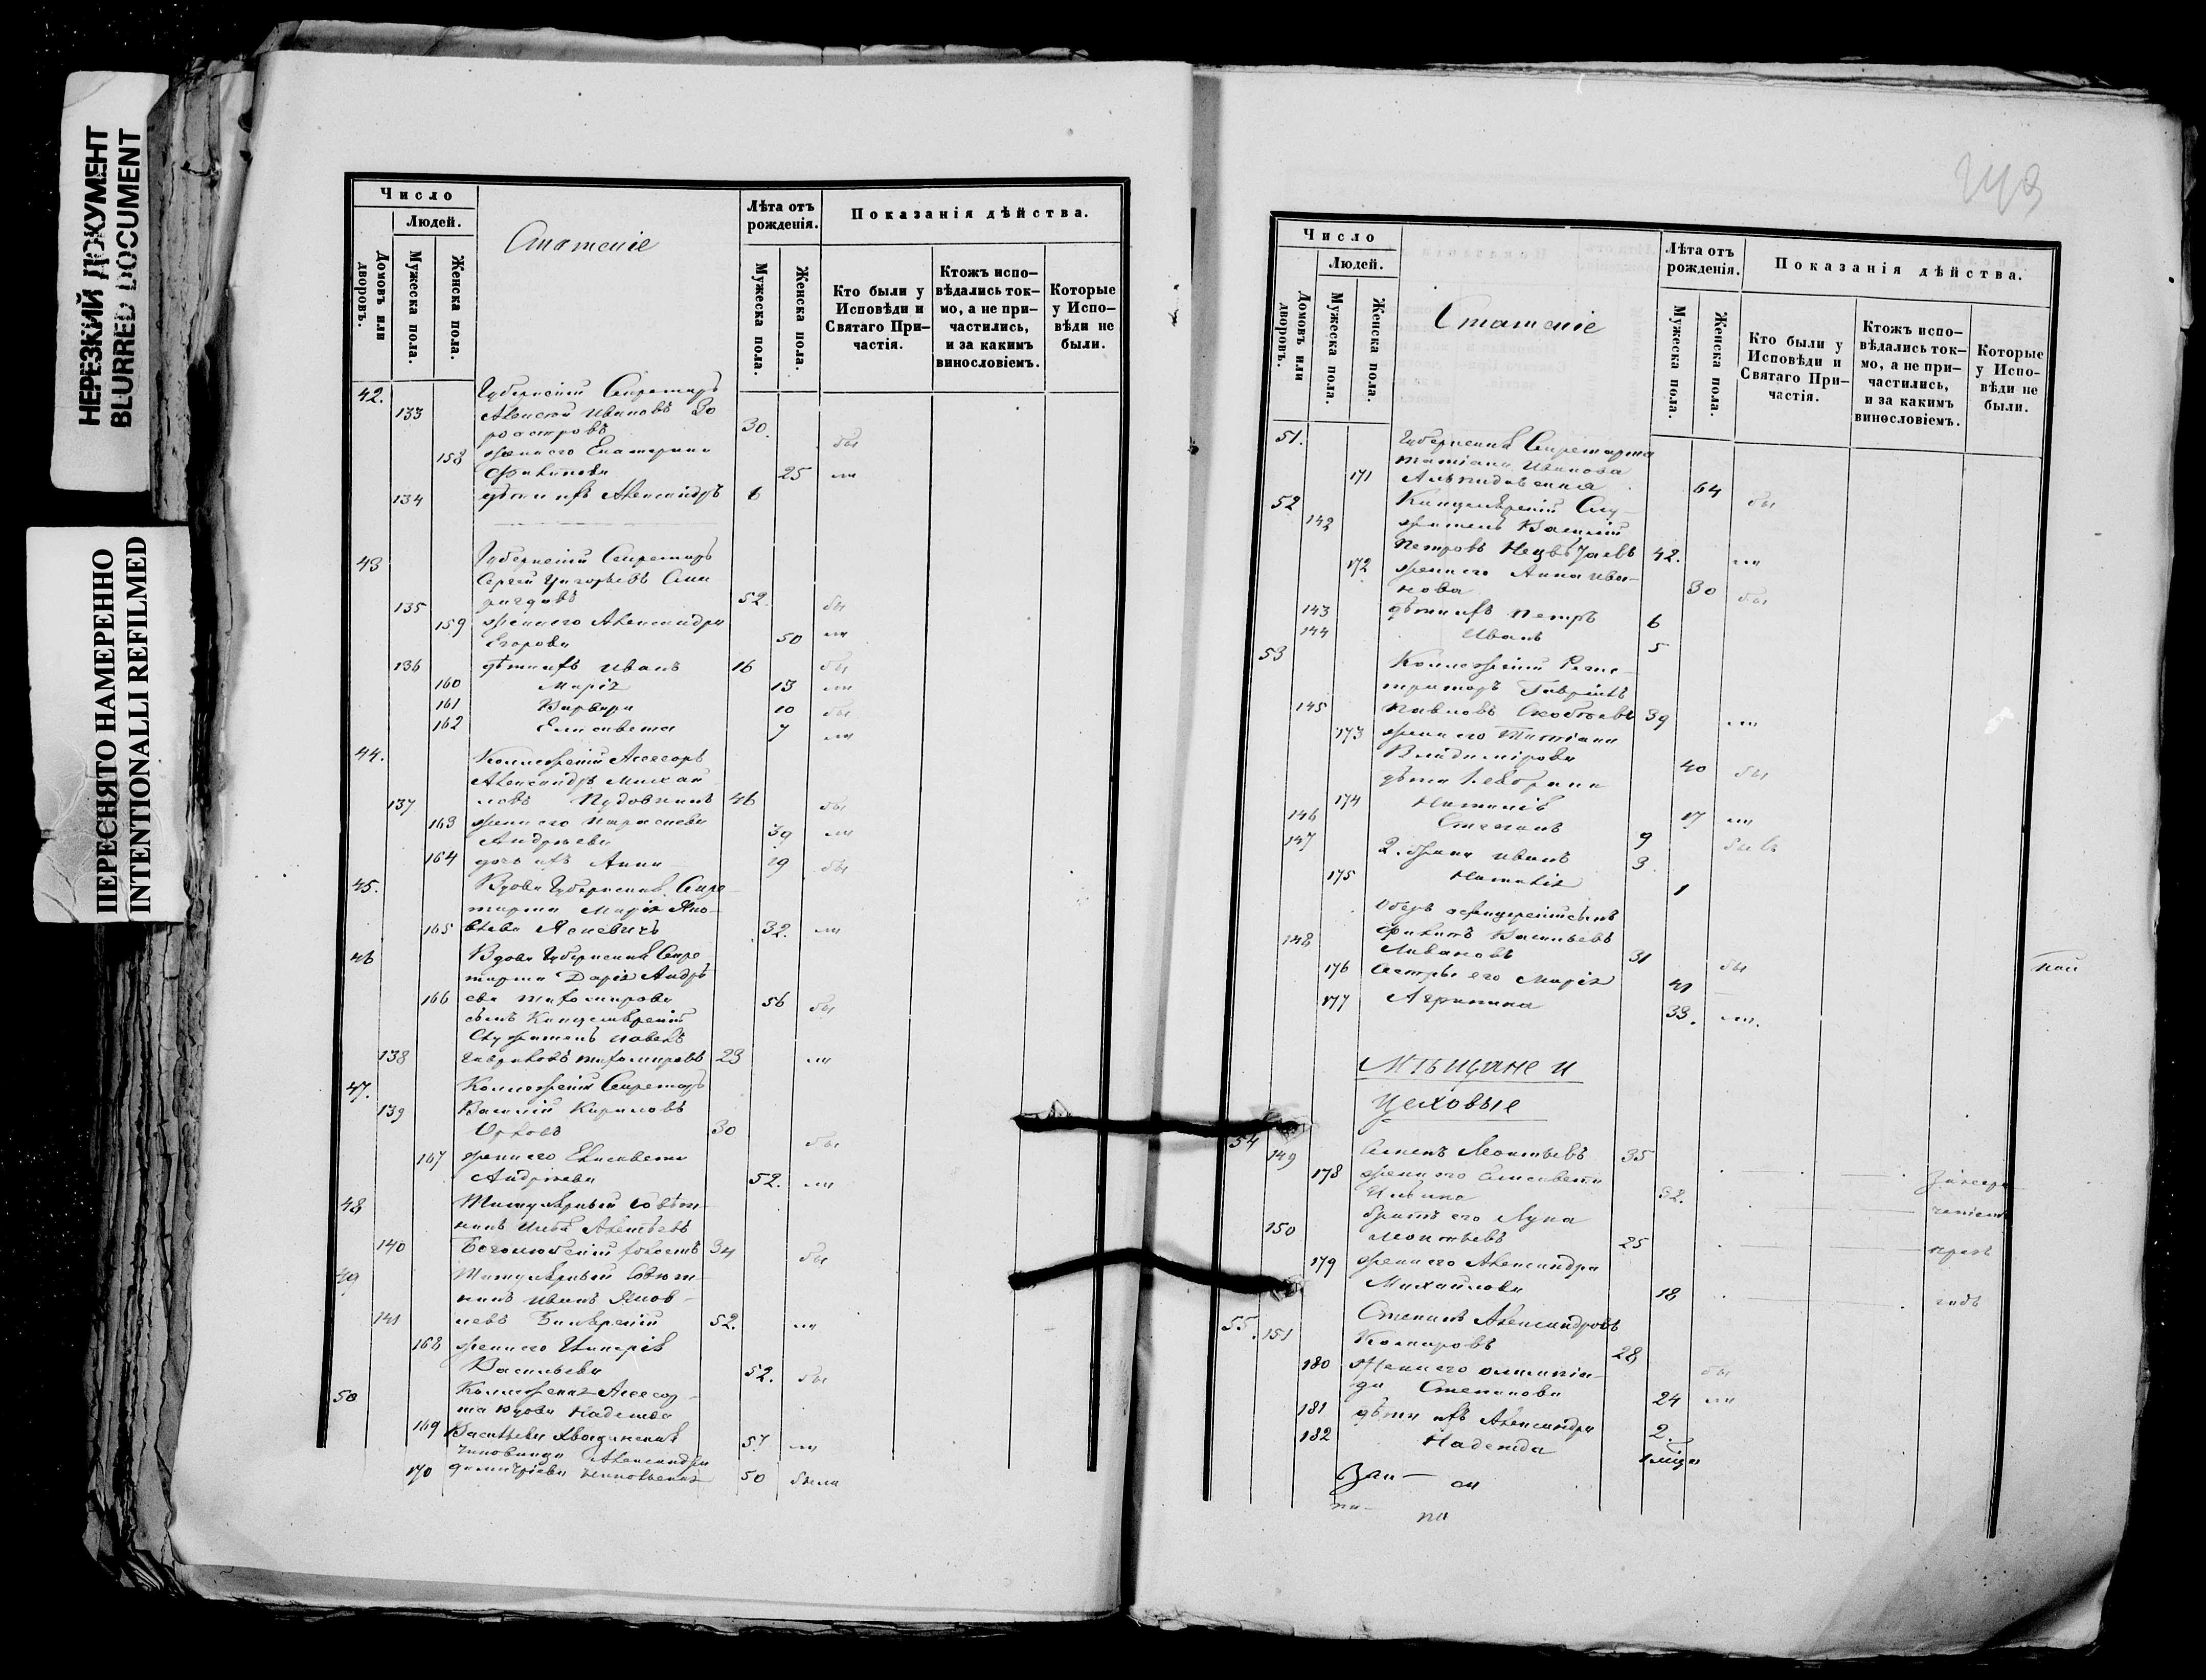 НЕРЕЗКИЙ ДОКУМЕНТ
BLURRED DOCUMENT
ПЕРЕСНЯТО НАМЕРЕННО
INTENTIONALLI REFILMED
Число
Людей.
Домовъ или дворовъ.
Мужеска пола.
Женска пола.
Статскіе
Лѣта отъ рожденія.
Мужеска пола.
Женска пола.
Показанія дѣйства.
Кто были у Исповѣди и Святаго При-частія.
Ктожъ испо-вѣдались ток-мо, а не при-частились, и за какимъ винословіемъ.
Которые у Испо-вѣди не были.
42. Губернскій Секретарь
133 Алексѣй Ивановъ Зо
роастровъ 30. бы
158 жена его Екатерина
Филипова 25 ли
134 дѣти ихъ Александръ 6
43 Губернскій Секретарь
Сергѣй Григорьевъ Спи
135 ридовъ 52. бы
159 жена его Александра
Егорова 50 ли
136 дѣти ихъ Иванъ 16 бы
160 Марія 13 ли
161 Варвара 10 бы
162 Елисавета 7 ли
44. Коллежскій Асессоръ
Александръ Михаи
137 ловъ Пудовкинъ 46 бы
163 жена его Параскева
Андреева 39 ли
164 дочь ихъ Анна 19 бы
45. Вдова Губернская Секре-
тарша Марія Яко-
165 влева 32. ли
46 Вдова Губернская Секре
тарша Дарія Андрѣ
166 ева Тихомирова 56 бы
сынъ Канцелярскій
Служитель Павелъ
138 Гавриловъ Тихомировъ 23 ли
47. Коллежскій Секретарь
139 Василій Кириловъ
Орловъ 30 бы
167 жена его Елисавета
Андреева 52. ли
48 Титулярный Совѣт-
никъ Илья Алексѣевъ
140 Боголюбскій холостъ 34 бы
49 Титулярный Совѣт-
никъ Иванъ Яков-
141 левъ Билярскій 52. ли
168 жена его Гликерія
Васильева 52. бы
50 Коллежская Асессор-
ша вдова Надежда
169 Васильева 57 ли
Чиновница Александра
170 Димитріева 50 были
Число
Людей.
Домовъ или дворовъ.
Мужеска пола.
Женска пола.
Статскіе
Лѣта отъ рожденія.
Мужеска пола.
Женска пола.
Показанія дѣйства.
Кто были у Исповѣди и Святаго При-частія.
Ктожъ испо-вѣдались ток-мо, а не при-частились, и за какимъ винословіемъ.
Которые у Испо-вѣди не были.
51. Губернская Секретарша
Татіана Иванова
171 64 бы
52 Канцелярскій Слу-
142 житель Василій
Петровъ 42. ли
172 жена его Анна Ива-
нова 30 бы
143 дѣти ихъ Петръ 6
144 Иванъ 5
53 Коллежскій Регис-
траторъ Гавріилъ
145 Павловъ Скобѣевъ 39 ли
173 жена его Татіана
Владимірова 40 бы
дѣти
174 Наталія 17 ли
146 Степанъ 9 былъ
147 2. брака Иванъ 3.
175 Наталія 1
Оберъ офицерскій сынъ
148 Филипъ Васильевъ
Ливановъ 31 бы
176 Сестры его Марія 41
177 Агрипина 33. ли.
Мѣщане и
Цеховые
54
149 Леонтьевъ 35
178 жена его Елисавета
Ильина 32.
150 братъ его Лука
Леонтьевъ 25
179 жена его Александра
Михайлова 18
55. Степанъ Александровъ
151 Комаровъ 28 бы
180 Жена его Олимпіа-
да Степанова 24 ли
181 дѣти ихъ Александра 2.
182 Надежда